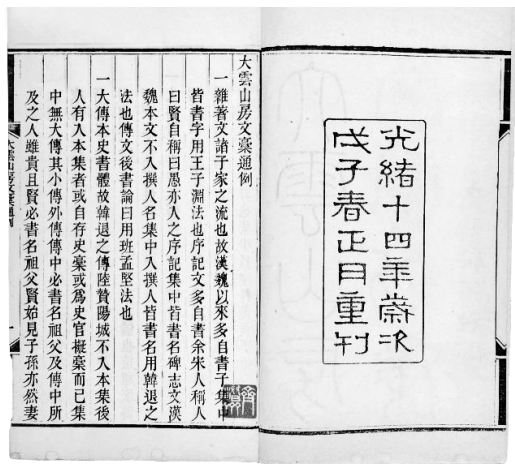 光緒十四年歲次
戊子春正月重刊
大雲山房文稾通例
一雜著文諸子家之流也故漢魏以來多自書子集中
皆書字用王子淵法也序記文多自書余宋人稱人
曰賢自稱曰愚亦人之序記集中皆書名碑志文漢
魏本文不入撰人名集中入撰人皆書名用韓退之
法也傳文後書論曰用班孟堅法也
一大傳本史書體故韓退之傳陸贄陽城不入本集後
人有入本集者或自存史稾或爲史官擬稾而已集
中無大傳其小傳外傳傳中必書名祖父及傳中所
及之人雖貴且賢必書名祖父賢始見子孫亦然妻
大雲山房文稾通例
一